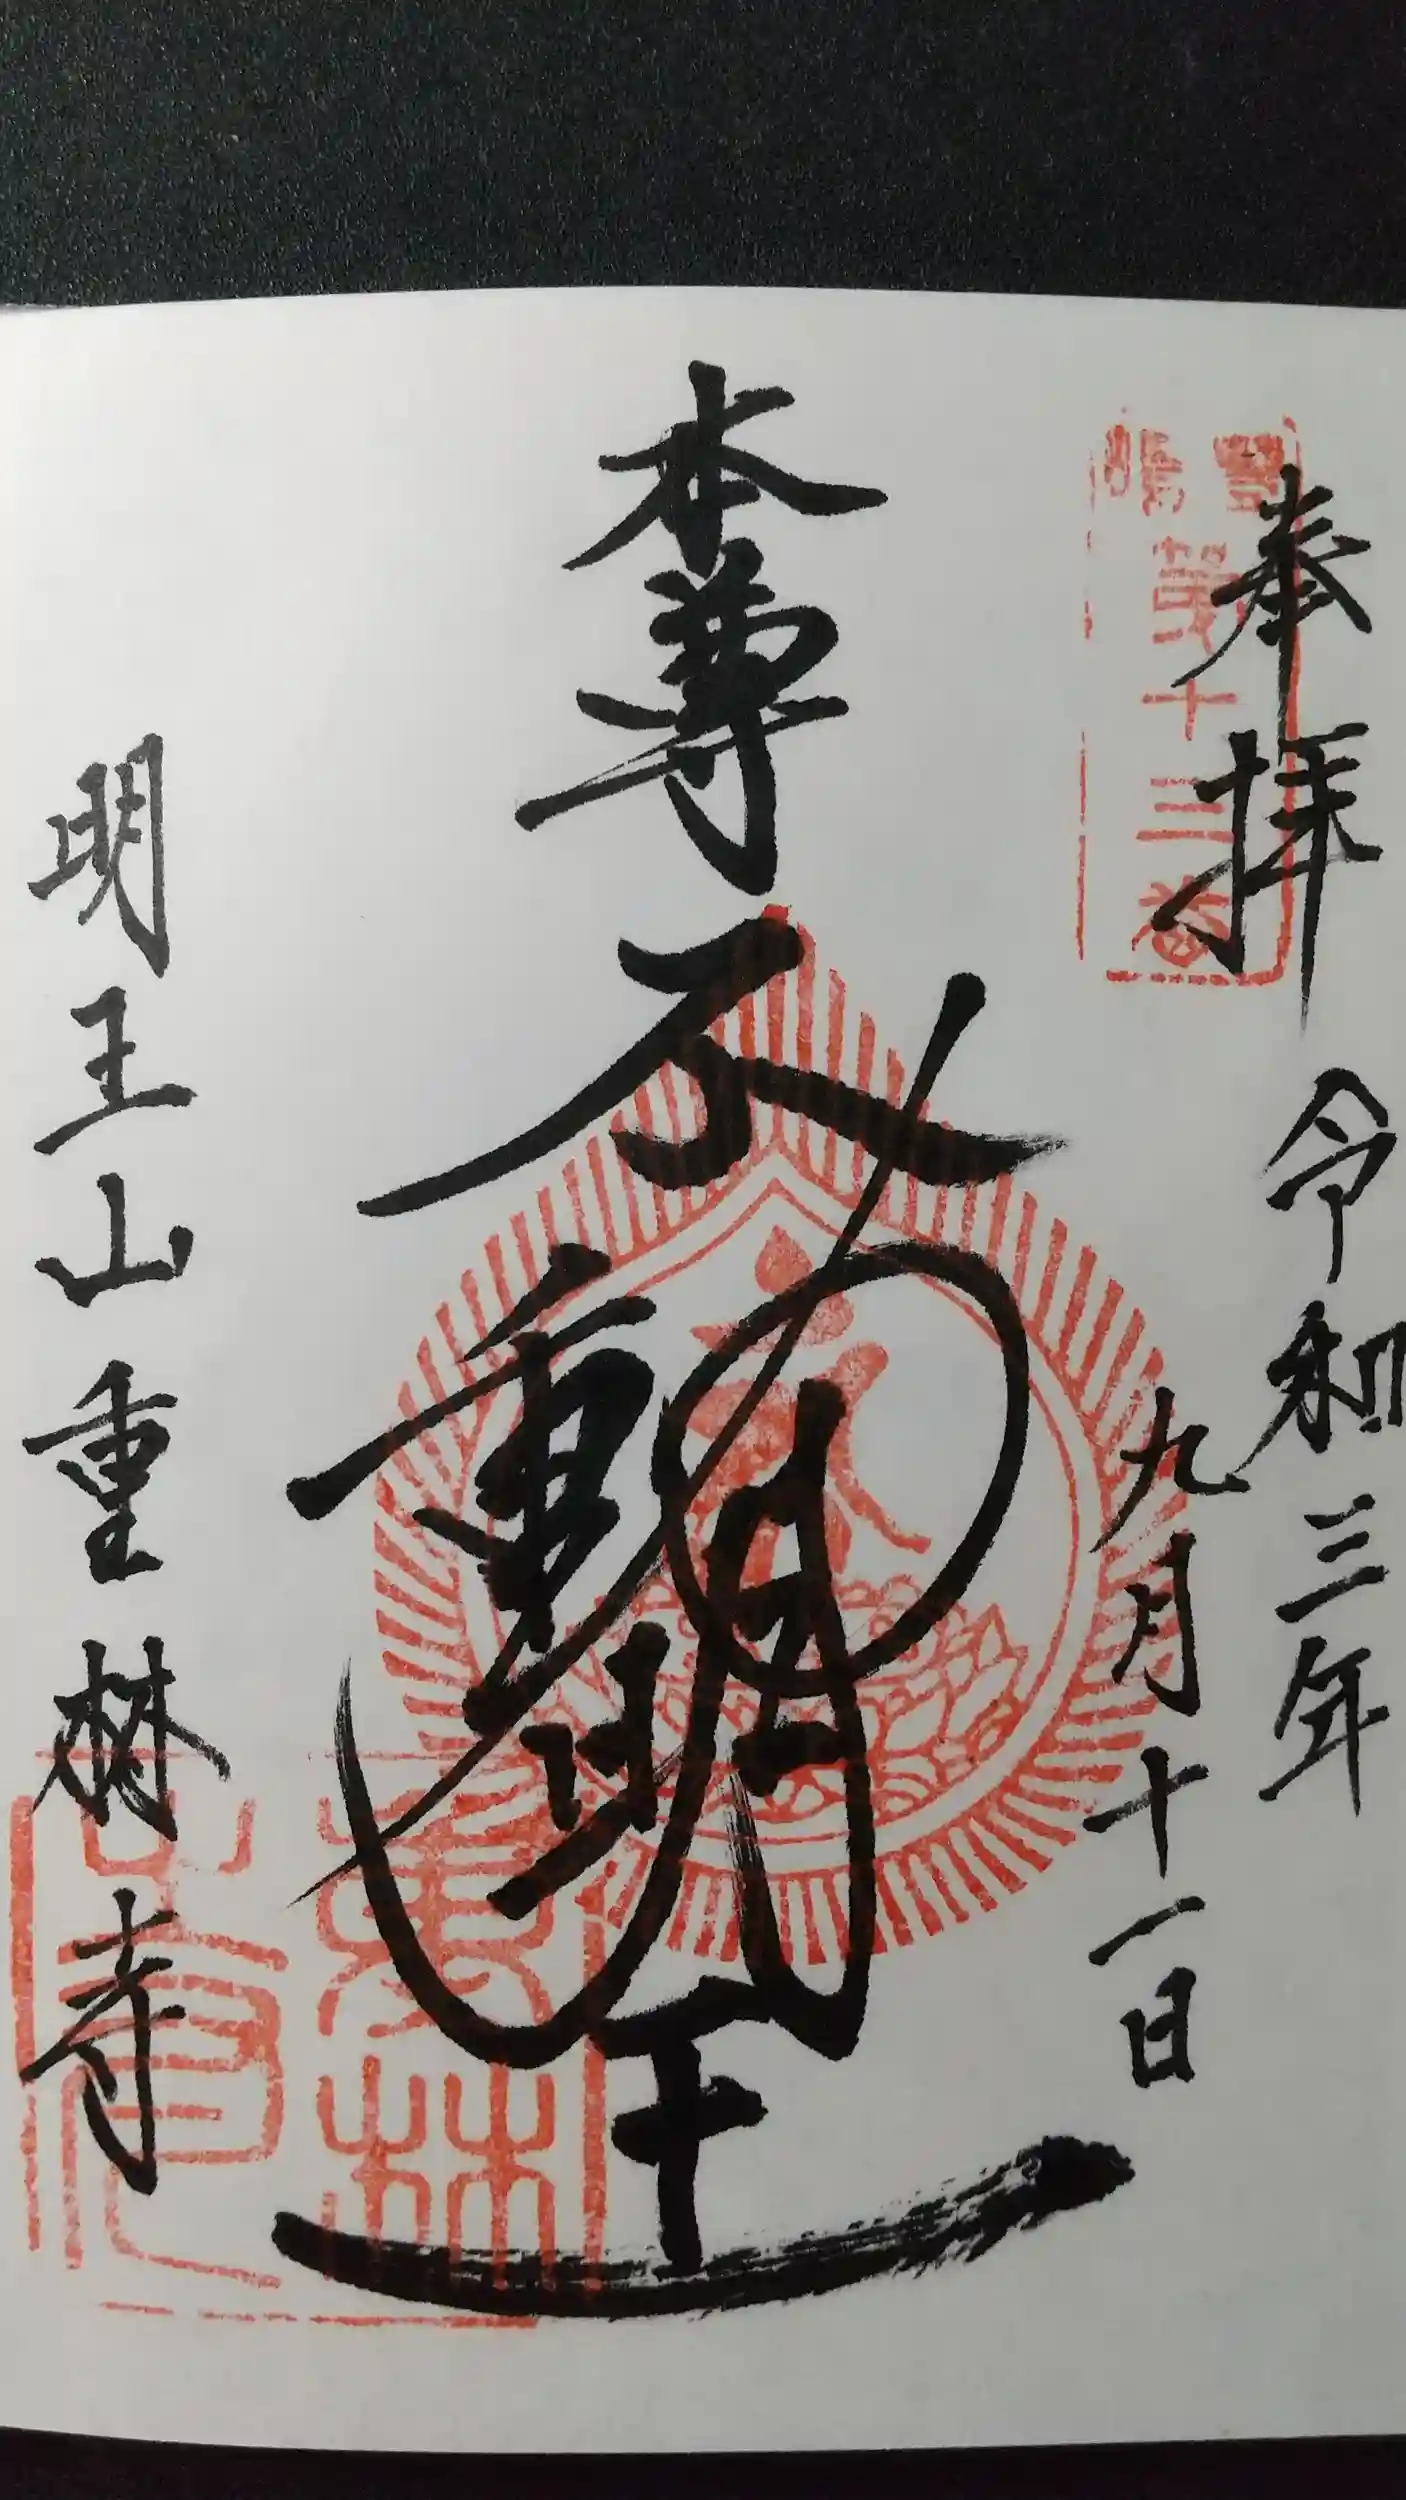 奉拝
令和三年
九月十一日
本尊不動明王
明王山重林寺
第十三番